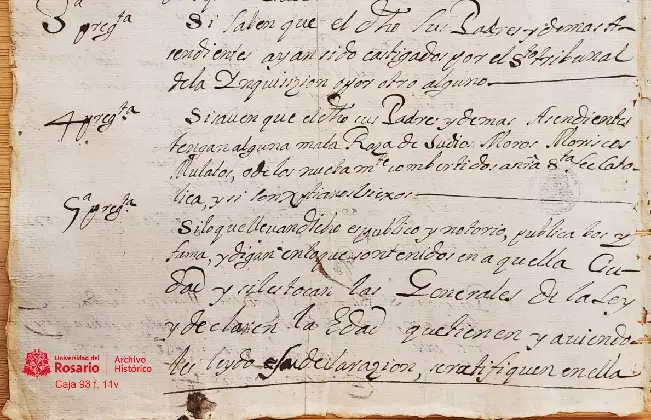 3ª pregta Si saben que el dho sus Padres y demas As-
sendientes ayan sido castigados por el Sto tribunal
de la Ynquisizion o por otro alguno
4 pregta Si saven que el dho sus Padres y demas Asendientes
tengan alguna mala Raza de Judios Moros Moriscos
Mulatos, o de los nueba mte combertidos a nra Sta fee Cato-
lica, y si son xptianos Viexos
5ª pregta Si lo que llevan dicho es publico y notorio, publica bos y
fama, y digan en lo que son tenidos en aquella Ciu-
dad y si les tocan las Generales de la Ley
y declaren la Edad que tienen y aviendo
les leydo su declarazion, se ratifiquen en ella
Universidad del
Rosario
Archivo
Histórico
Caja 93 f. 14v